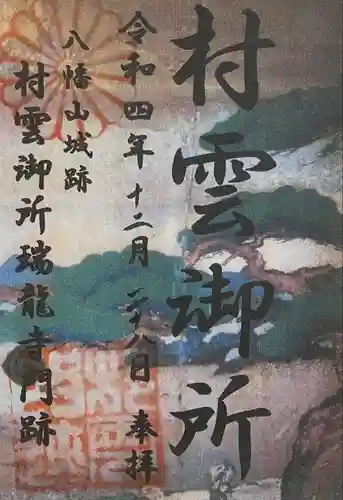 村雲御所
令和四年十二月二十八日 奉拝
八幡山城跡
村雲御所瑞龍寺門跡